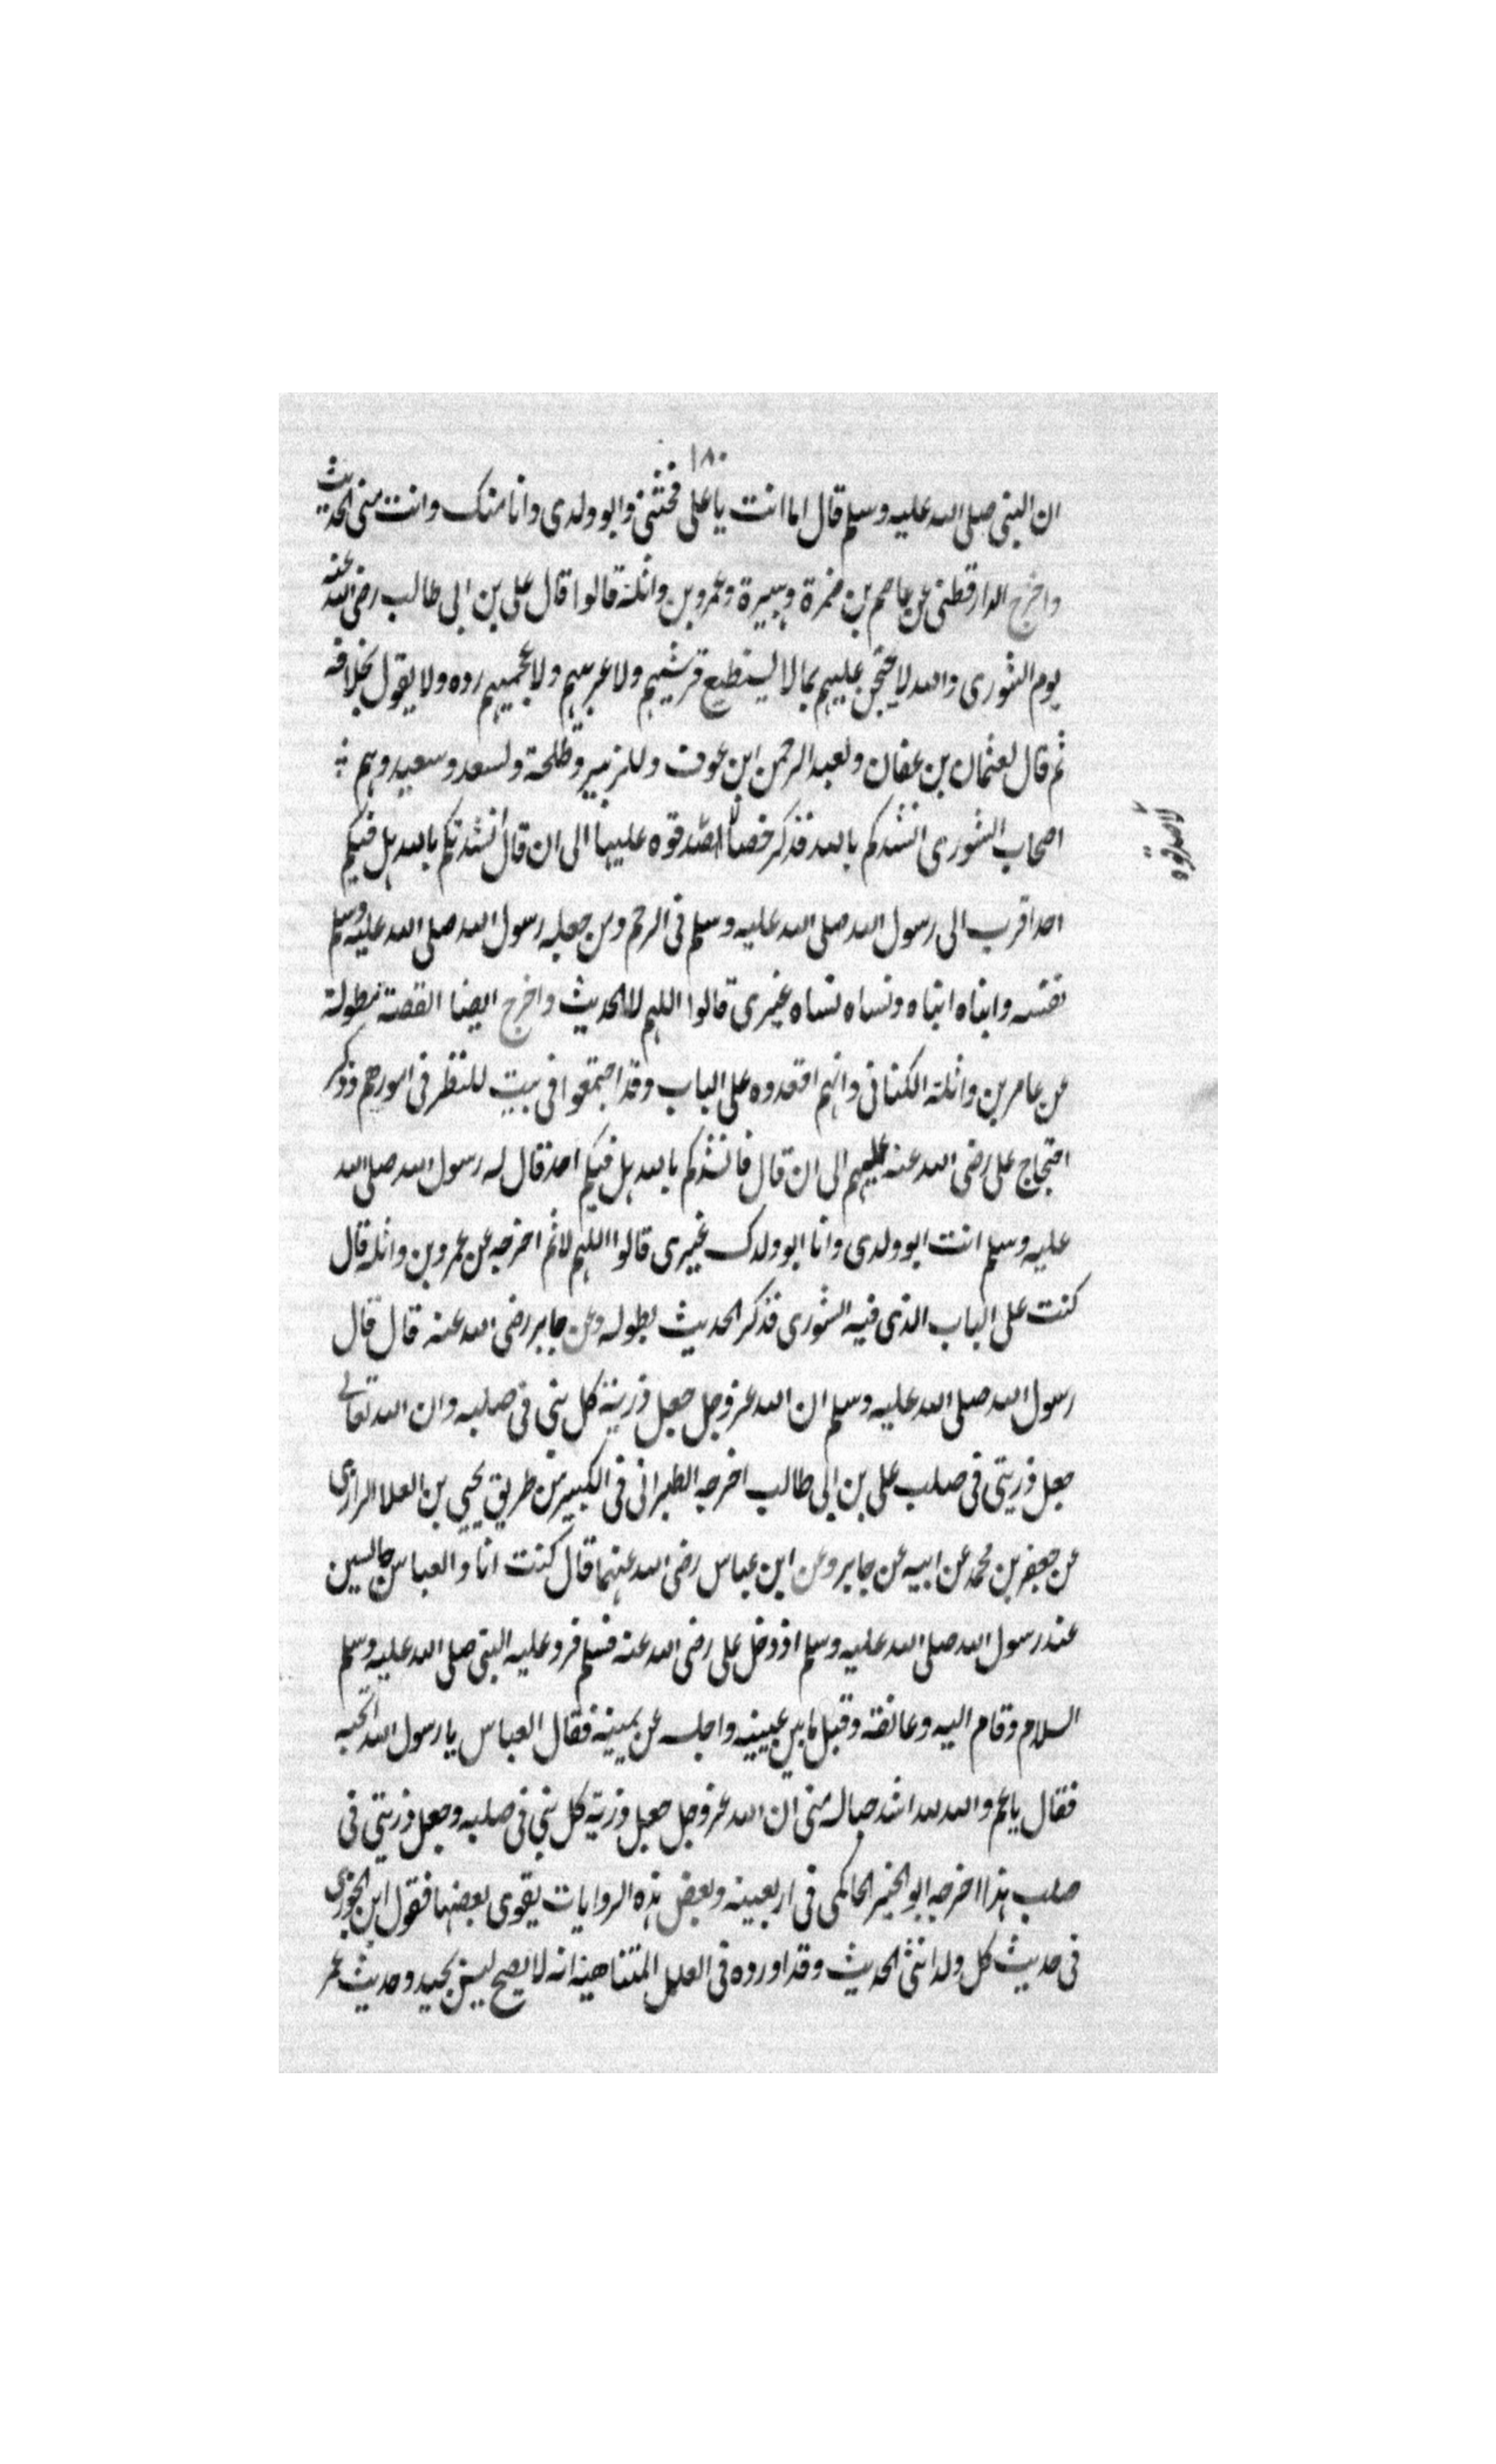 ١٨٠
ان النبى صلى الله عليه وسلم قال اما انت يا على فختنى وابو ولدى وانا منك وانت منى الحديث
واخرج الدارقطنى عن عاصم بن ضمرة وهبيرة وعمرو بن واثلة قالوا قال على بن ابى طالب رضى الله عنه
يوم الشورى والله لاحتجن عليهم بما لا يستطيع قرشيهم ولا عربيهم ولا عجميهم رده ولا يقول بخلافه
ثم قال لعثمان بن عفان ولعبد الرحمن ابن عوف وللزبير وطلحة ولسعد وسعيد وهم
اصحاب الشورى انشدكم بالله فذكر خصالا صدقوه عليها الى ان قال انشدتكم بالله هل فيكم
لا صدقوه
احد اقرب الى رسول الله صلى الله عليه وسلم فى الرحم ومن جعله رسول الله صلى الله عليه وسلم
نفسه وابناه ابناه ونساه نساه غيرى قالوا اللهم لا الحديث واخرج ايضا القصة مطولة
عن عامر بن واثلة الكنانى وانهم اقعدوه على الباب وقد اجتمعوا فى بيت للنظر فى امورهم وذكر
احتجاج على رضى الله عنه عليهم الى ان قال فانشدكم بالله هل فيكم احد قال له رسول الله صلى الله
عليه وسلم انت ابو ولدى وانا ابو ولدك غيرى قالوا اللهم لا ثم اخرجه عن عمرو بن واثلة قال
كنت على الباب الذى فيه الشورى فذكر الحديث بطوله وعن جابر رضى الله عنه قال قال
رسول الله صلى الله عليه وسلم ان الله عز وجل جعل ذرية كل نبى فى صلبه وان الله تعالى
جعل ذريتى فى صلب على بن ابى طالب اخرجه الطبرانى فى الكبير من طريق يحيى بن العلا الرازى
عن جعفر بن محمد عن ابيه عن جابر وعن ابن عباس رضى الله عنهما قال كنت انا والعباس جالسين
عند رسول الله صلى الله عليه وسلم اذ دخل على رضى الله عنه فسلم فرد عليه النبى صلى الله عليه وسلم
السلام وقام اليه وعانقه وقبل ما بين عينيه واجلسه عن يمينه فقال العباس يا رسول الله اتحبه
فقال يا عم والله لله اشد حبا له منى ان الله عز وجل جعل ذرية كل نبى فى صلبه وجعل ذريتى فى
صلب هذا اخرجه ابو الخير الحاكمى فى اربعينه وبعض هذه الروايات يقوى بعضها فقول ابن الجوزى
فى حديث كل ولد انثى الحديث وقد اورده فى العلل المتناهية انه لا يصح ليس بجيد وحديث عمر